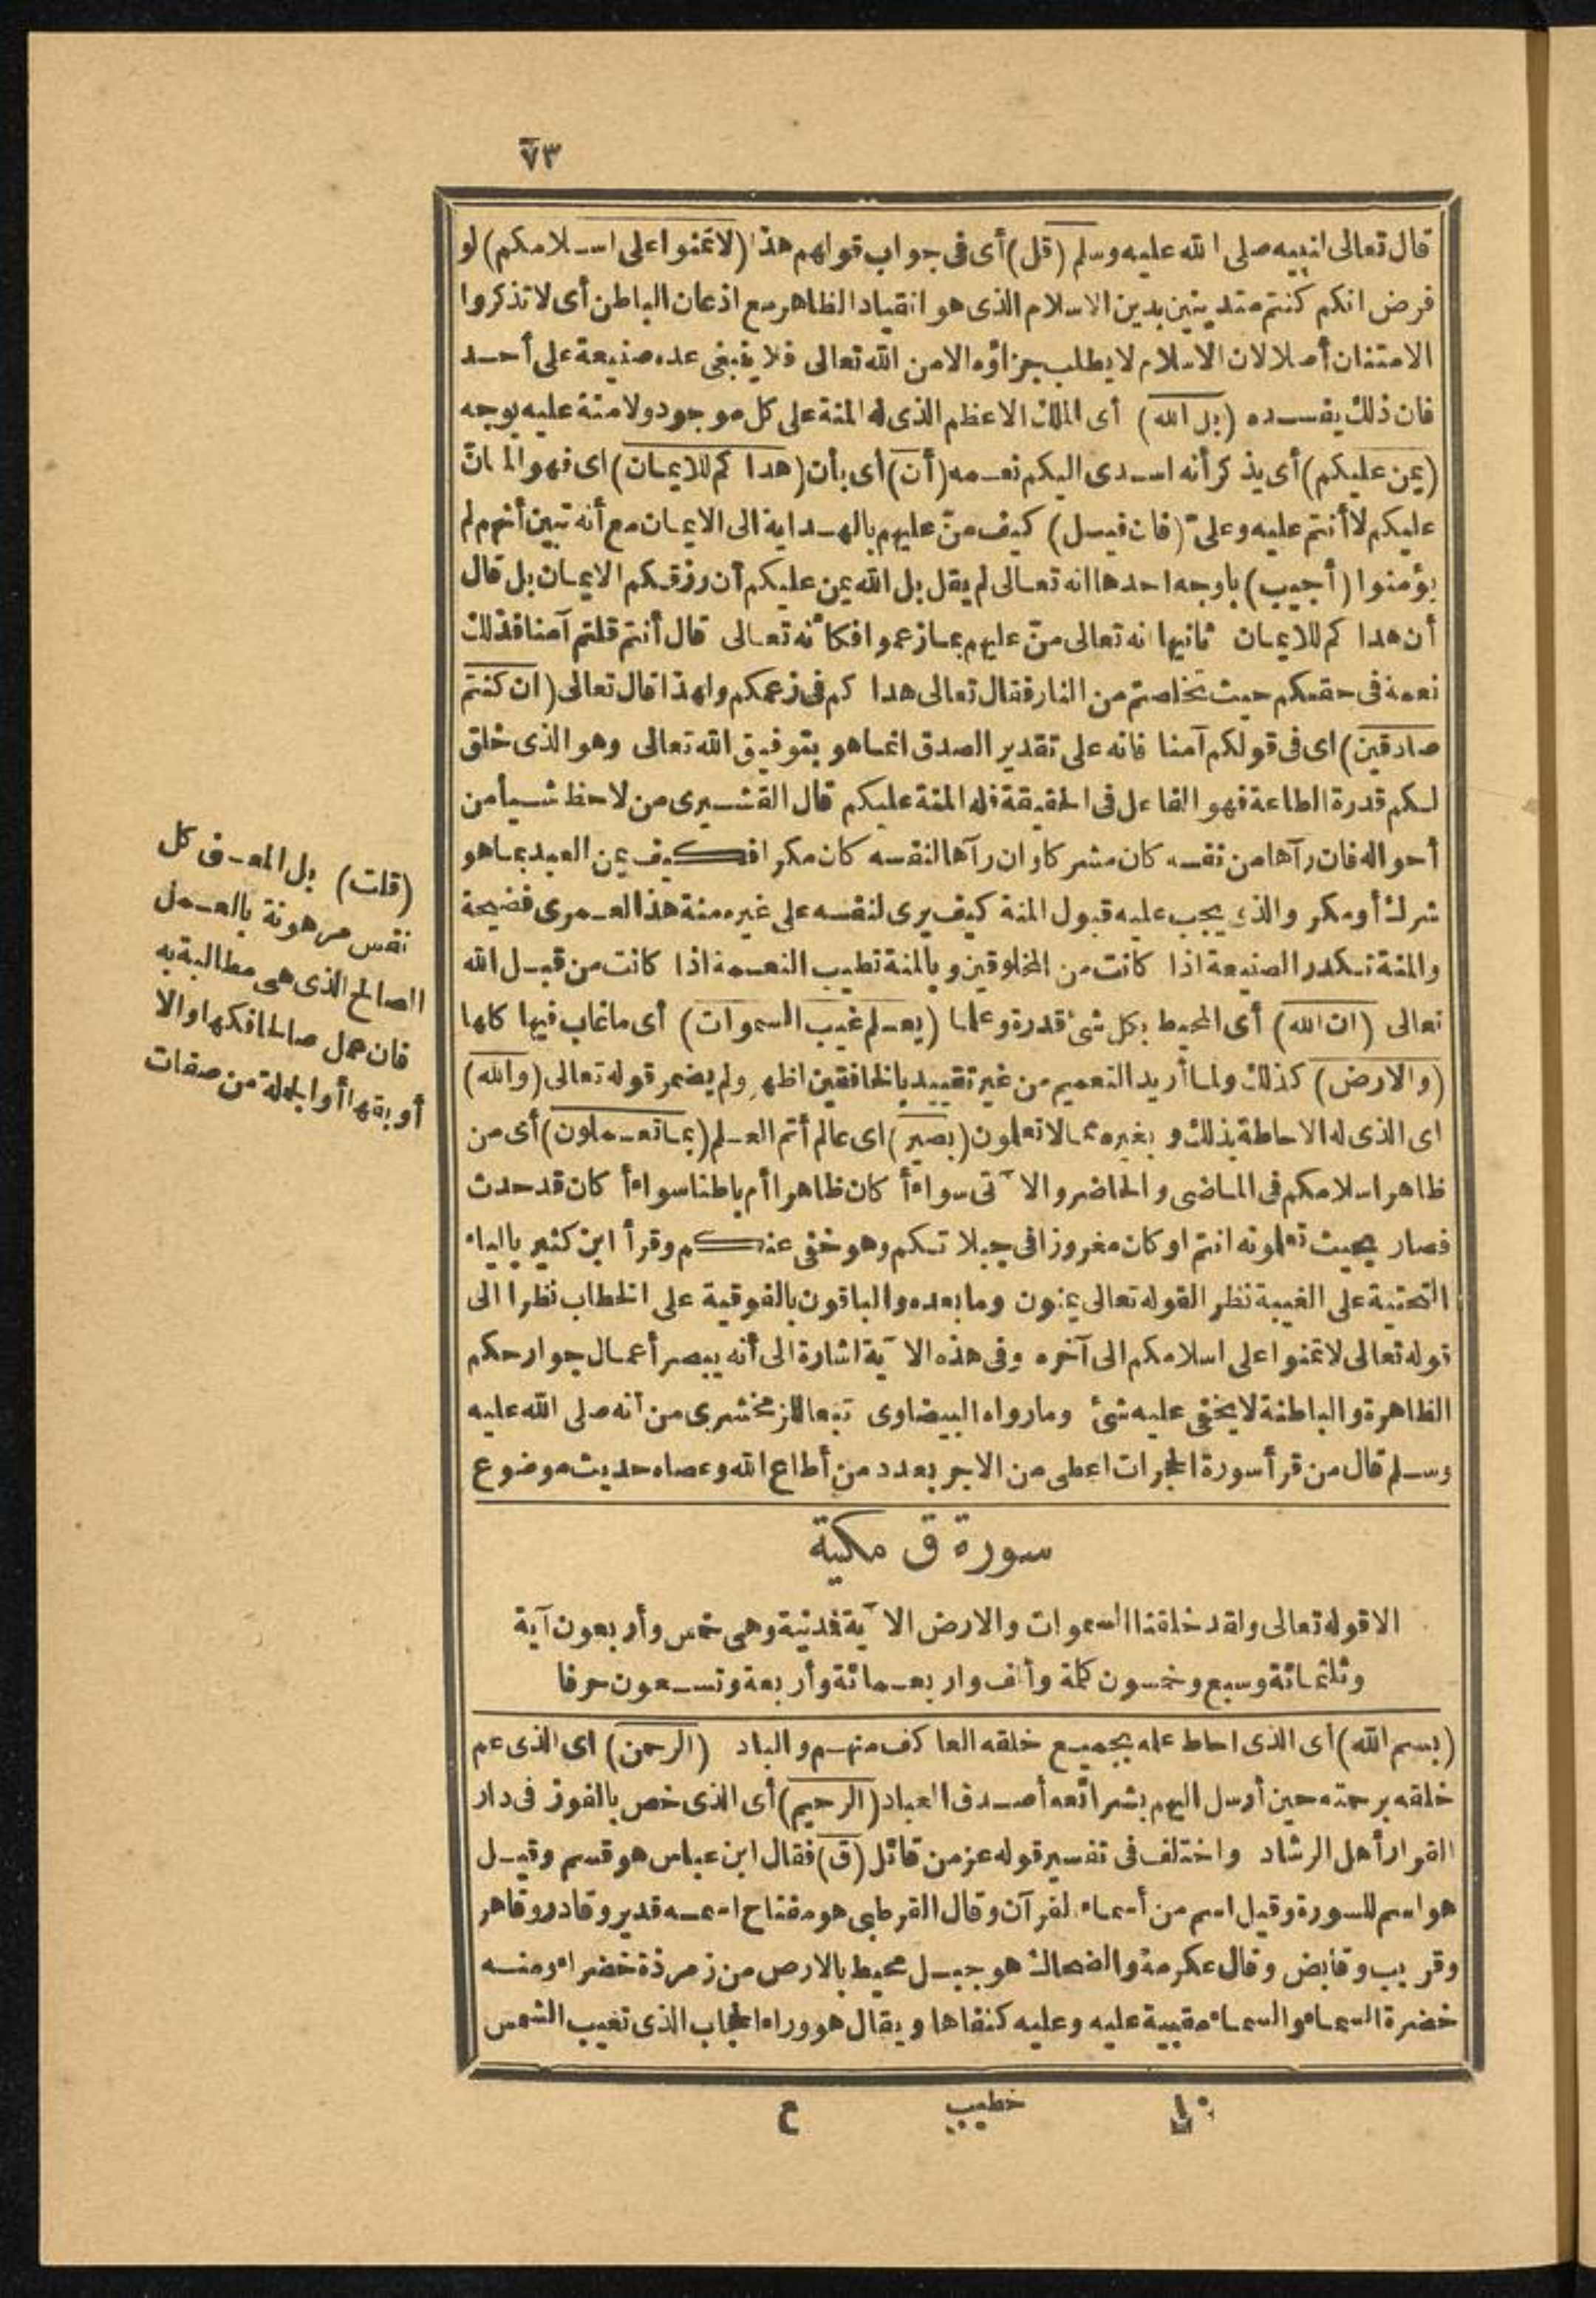 ٧٣
قال تعالى لنبيه صلى الله عليه وسلم (قل) أى فى جواب قولهم هذا (لا تمنوا على اسلامكم) لو
فرض انكم كنتم متدينين بدين الاسلام الذى هو انقياد الظاهر مع اذعان الباطن أى لا تذكروا
الامتنان أصلا لان الاسلام لا يطلب جزاؤه الا من الله تعالى فلا ينبغى عده صنيعة على أحد
فان ذلك يفسده (بل الله) أى الملك الاعظم الذى له المنة على كل موجود ولا منة عليه بوجه
(يمن عليكم) أى يذكر أنه اسدى اليكم نعمه (أن) أى بأن (هداكم للايمان) اى فهو المانّ
عليكم لا أنتم عليه وعلىّ (فان قيل) كيف منّ عليهم بالهداية الى الايمان مع أنه تبين أنهم لم
يؤمنوا (أجيب) باوجه احدها انه تعالى لم يقل بل الله يمن عليكم أن رزقكم الايمان بل قال
أن هداكم للايمان ثانيها انه تعالى منّ عليهم بما زعموا فكأنه تعالى قال أنتم قلتم آمنا فذلك
نعمة فى حقكم حيث تخلصتم من النار فقال تعالى هداكم فى زعمكم ولهذا قال تعالى (ان كنتم
صادقين) اى فى قولكم آمنا فانه على تقدير الصدق انما هو بتوفيق الله تعالى وهو الذى خلق
لكم قدرة الطاعة فهو الفاعل فى الحقيقة فله المنة عليكم قال القشيرى من لاحظ شيأ من
أحواله فان رآها من نفسه كان مشركا وان رآها لنفسه كان مكرا فكيف يمن العبد بما هو
شرك أو مكر والذى يجب عليه قبول المنة كيف يرى لنفسه على غيره منة هذا لعمرى فضيحة
والمنة تكدر الصنيعة اذا كانت من المخلوقين وبالمنة تطيب النعمة اذا كانت من قبل الله
تعالى (ان الله) أى المحيط بكل شئ قدرة وعلما (يعلم غيب السموات) أى ما غاب فيها كلها
(والارض) كذلك ولما أريد التعميم من غير تقييد بالخافقين اظهر ولم يضمر قوله تعالى (والله)
اى الذى له الاحاطة بذلك وبغيره مما لا تعلمون (بصير) اى عالم أتم العلم (بما تعملون) أى من
ظاهر اسلامكم فى الماضى والحاضر والآتى سواء أكان ظاهرا أم باطنا سواء أكان قد حدث
فصار بحيث تعلمونه انتم او كان مغروزا فى جبلاتكم وهو خفى عنكم وقرأ ابن كثير بالياء
التحتية على الغيبة نظرا لقوله تعالى يمنون وما بعده والباقون بالفوقية على الخطاب نظرا الى
قوله تعالى لا تمنوا على اسلامكم الى آخره وفى هذه الآية اشارة الى أنه يبصر أعمال جوارحكم
الظاهرة والباطنة لا يخفى عليه شئ وما رواه البيضاوى تبعا للزمخشرى من أنه صلى الله عليه
وسلم قال من قرأ سورة الحجرات اعطى من الاجر بعدد من أطاع الله وعصاه حديث موضوع
سورة ق مكية
الا قوله تعالى ولقد خلقنا السموات والارض الآية فمدنية وهى خمس وأربعون آية
وثلثمائة وسبع وخمسون كلمة وألف واربعمائة وأربعة وتسعون حرفا
(بسم الله) أى الذى احاط علمه بجميع خلقه العاكف منهم والباد (الرحمن) اى الذى عم
خلقه برحمته حين أرسل اليهم بشرائعه أصدق العباد (الرحيم) أى الذى خص بالفوز فى دار
القرار أهل الرشاد واختلف فى تفسير قوله عز من قائل (ق) فقال ابن عباس هو قسم وقيل
هو اسم للسورة وقيل اسم من أسماء القرآن وقال القرطبى هو مفتاح اسمه قدير وقادر وقاهر
وقريب وقابض وقال عكرمة والضحاك هو جبل محيط بالارض من زمرذة خضراء ومنه
خضرة السماء والسماء مقبية عليه وعليه كنفاها ويقال هو وراء الحجاب الذى تغيب الشمس
(قلت) بل المعنى كل
نفس مرهونة بالعمل
الصالح الذى هى مطالبة به
فان عمل صالحا فكها والا
أوبقها أو الجملة من صفات
١٠ خطيب ع